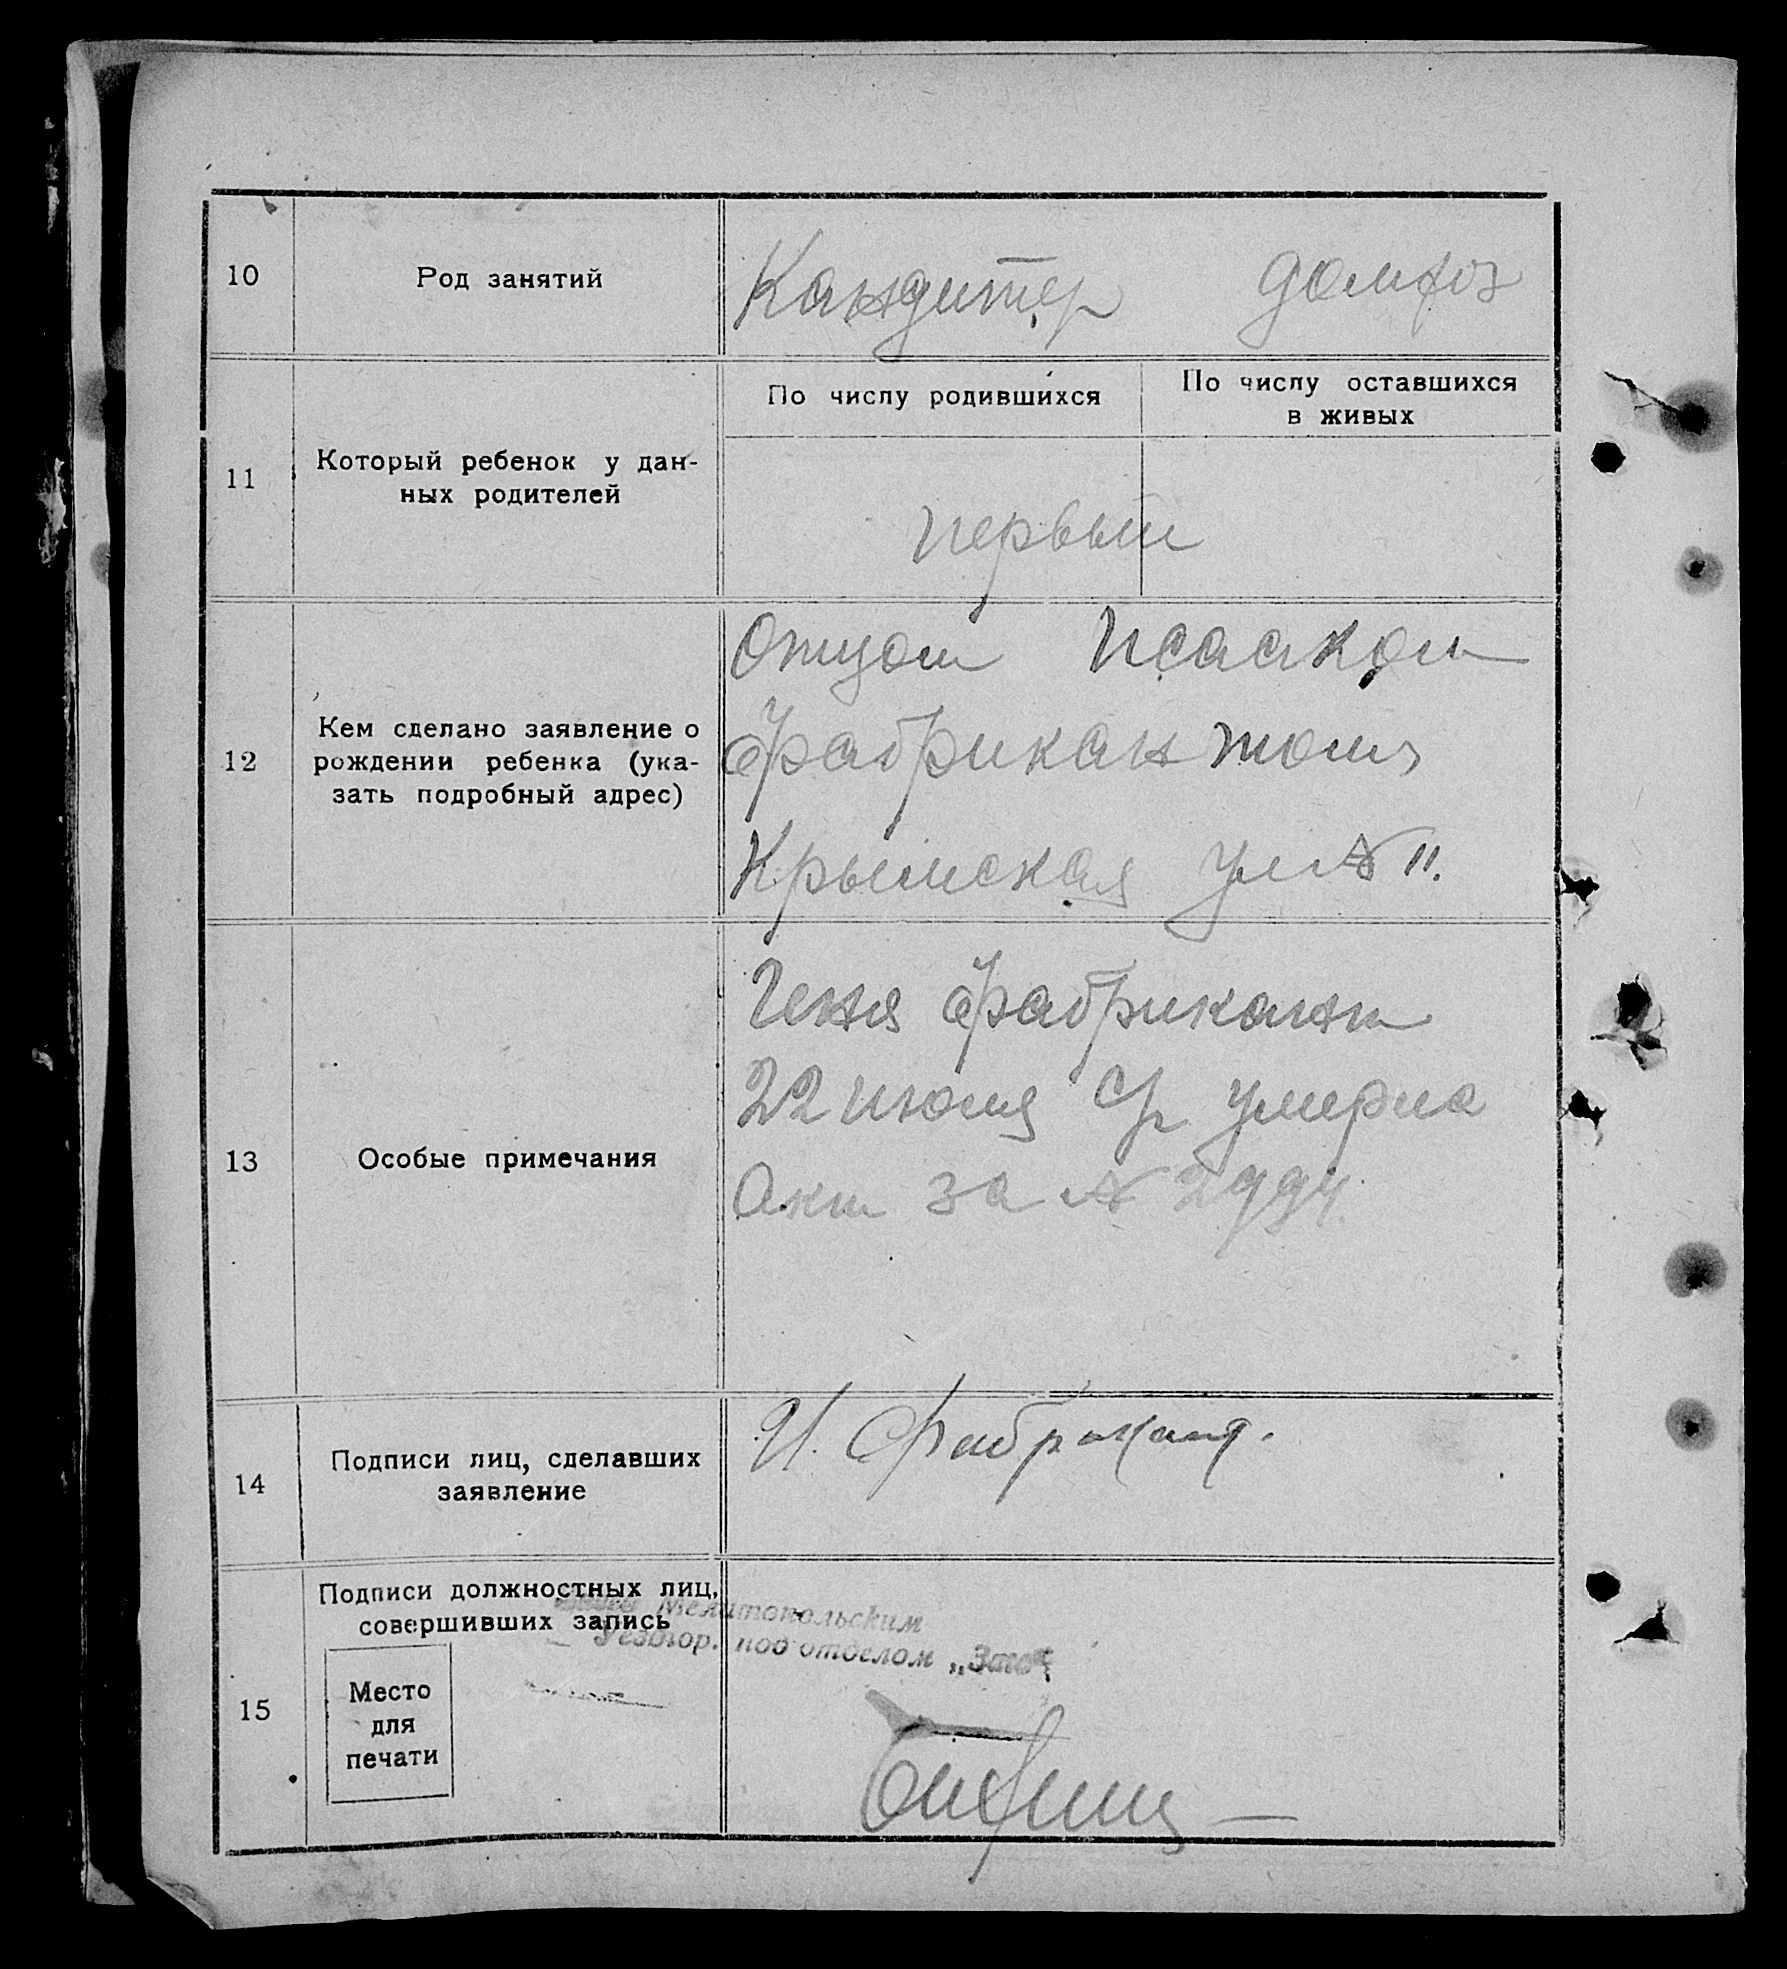 10 Род занятий Кандитер домхоз
По числу родившихся По числу оставшихся
в живых
11 Который ребенок у дан-
ных родителей
первый
Отцом Исааком
12 Кем сделано заявление о
рождении ребенка (ука-
зать подробный адрес)
Фабрикантом
Крымская ул № 11.
Геня Фабрикант
22 июня с/г умерла
13 Особые примечания
Акт за №
14 Подписи лиц, сделавших
заявление
И. Фабрикант.
15 Подписи должностных лиц,
совершивших запись
Мелитопольским
Уездгор. под'отделом „Загс"
Место
для
печати